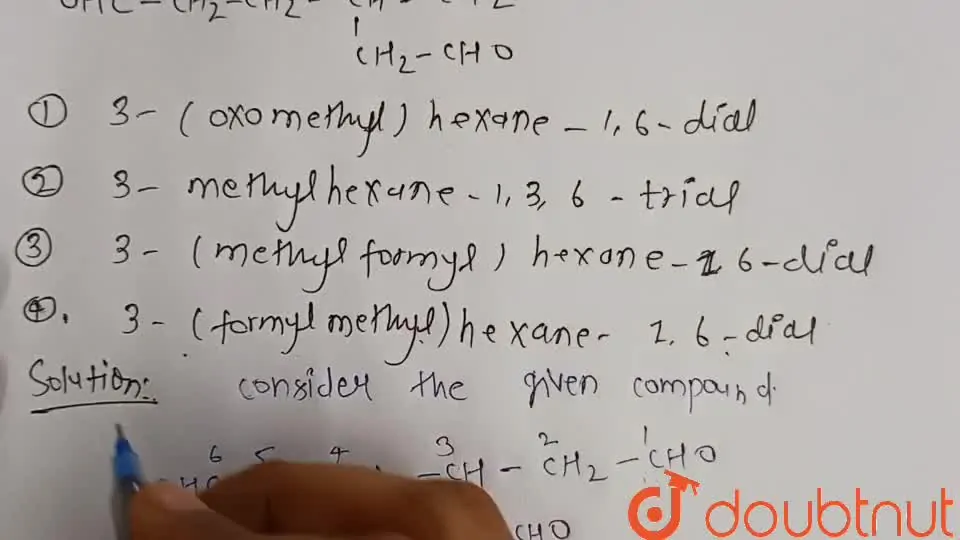 CH₂–CHO
① 3-(oxomethyl)hexane-1,6-dial
② 3-methylhexane-1,3,6-trial
③ 3-(methylformyl)hexane-1 6-dial
④. 3-(formylmethyl)hexane-1,6-dial
Solution:. consider the given compound.
6 5 4 3 2 1
–CH–CH₂–CHO
CHO
doubtnut